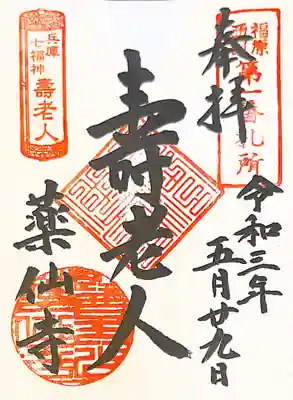 福原
西国
第一番札所
奉拝
令和三年
五月廿九日
壽老人
兵庫
七福神
壽老人
薬仙寺